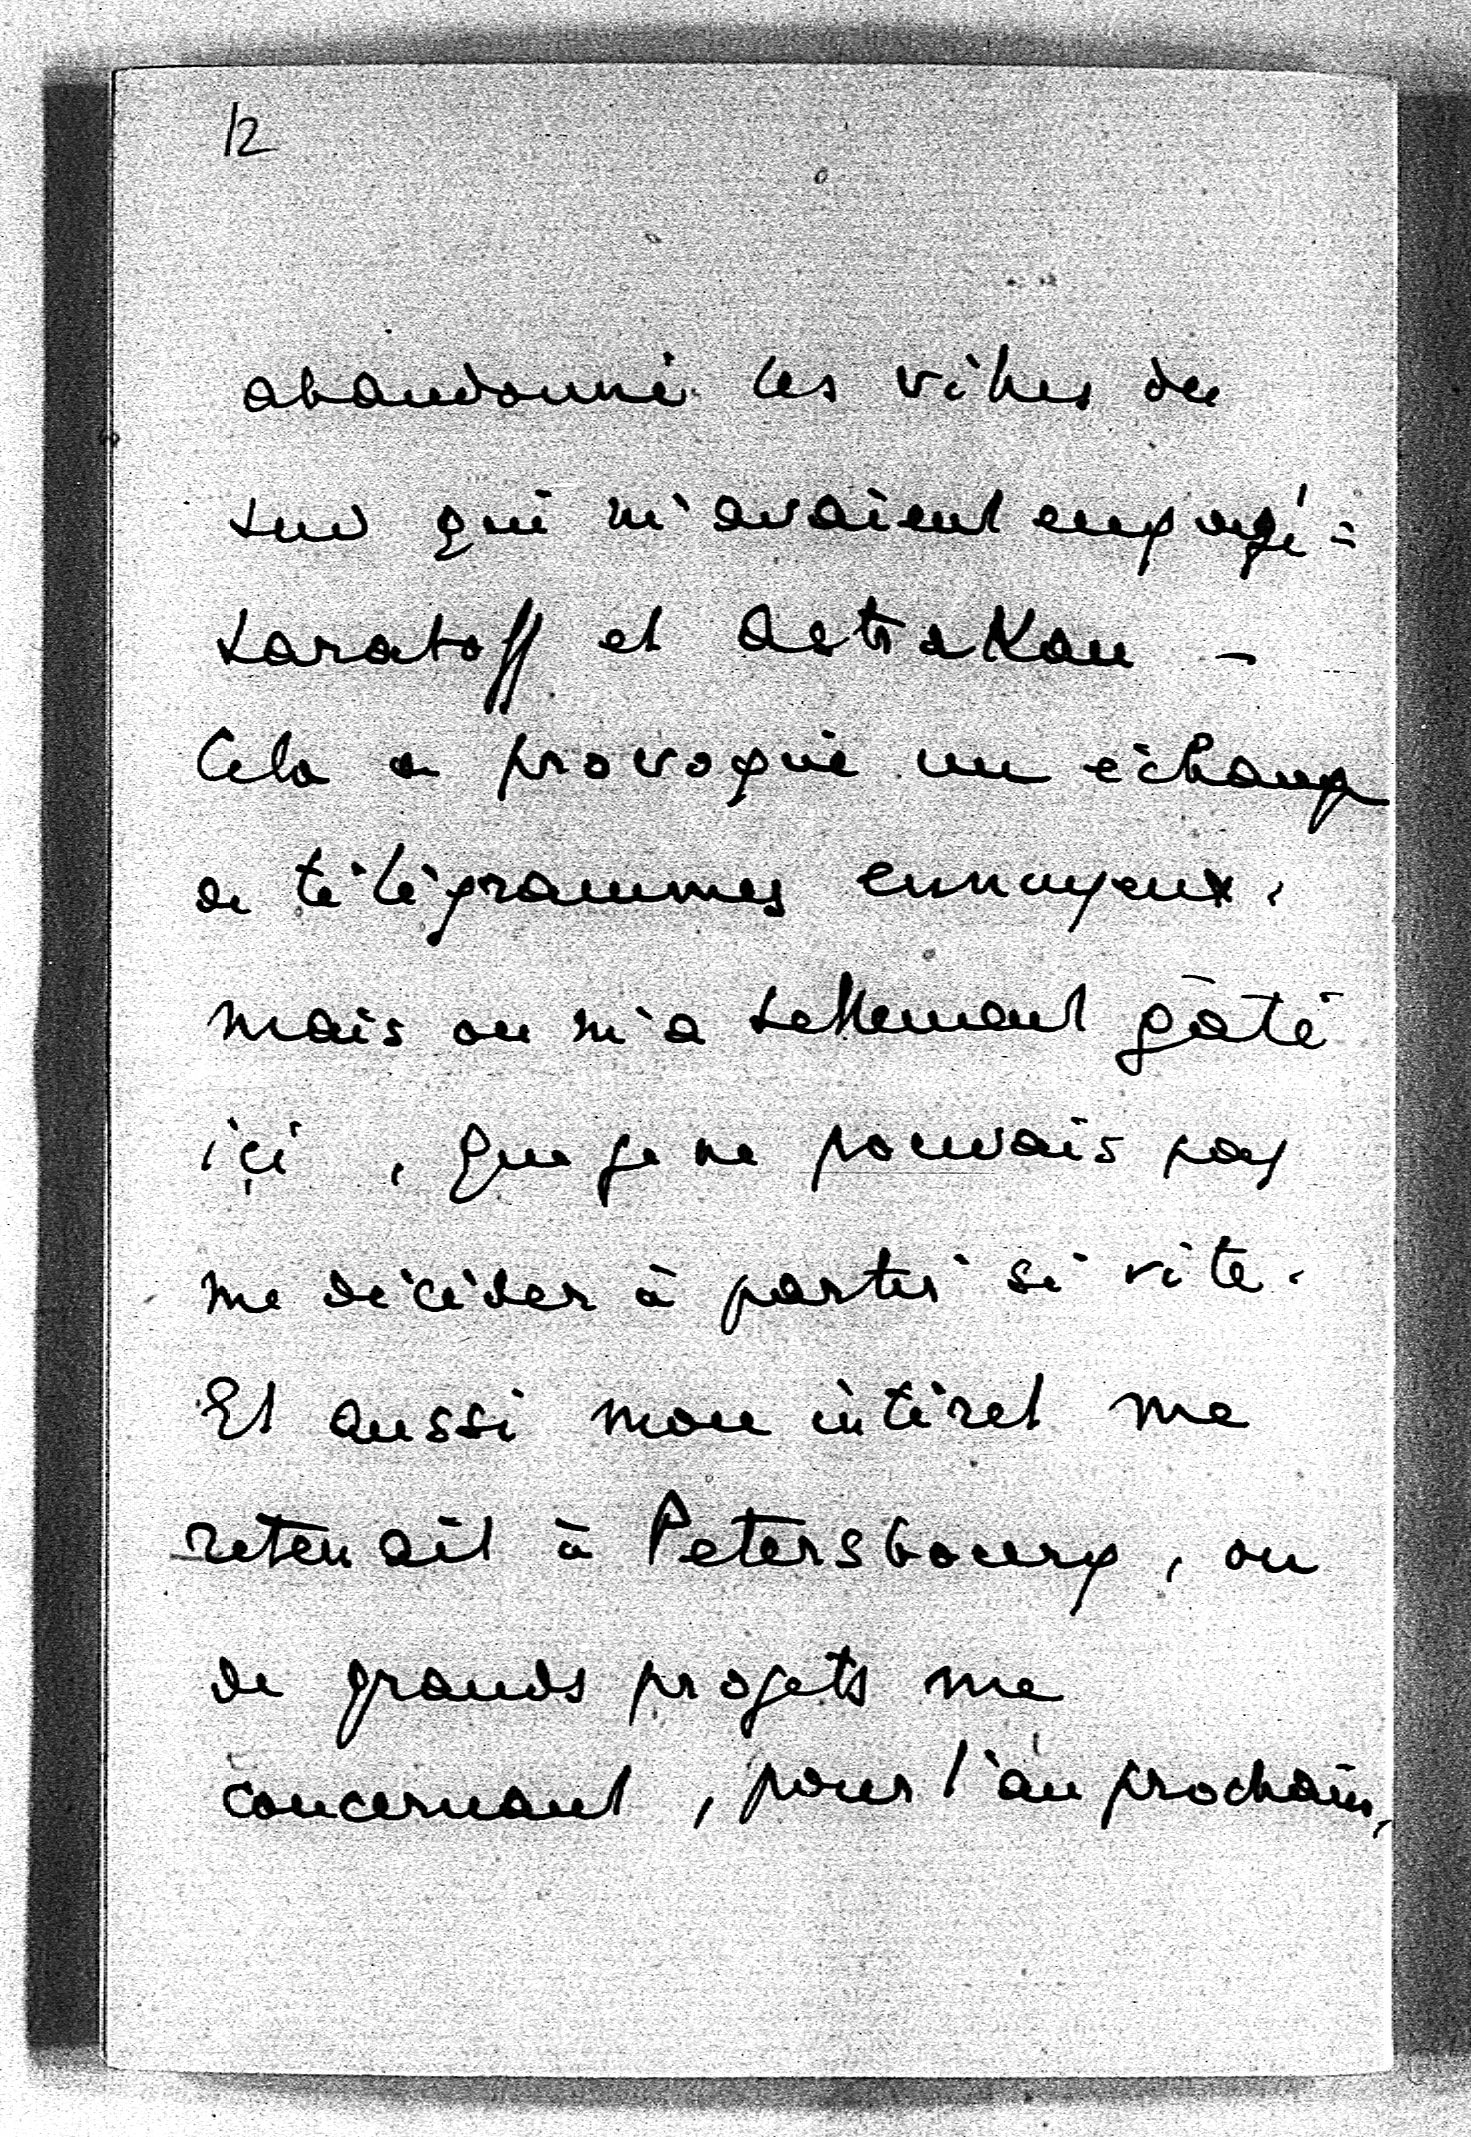 12
abandonné les villes du
sud qui m'avaient engagé =
Saratoff et Astrakan -
Cela a provoqué un échange
de télégrammes ennuyeux.
mais on m'a tellement gâté
içi, que je ne pouvais pas
me décider à partir si vite.
Et aussi mon intéret me
retenait à Petersbourg, ou
de grands projets me
concernant, pour l'an prochain,